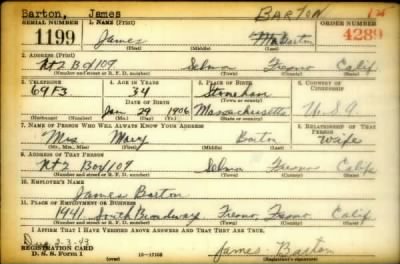 Barton, James BARTON
SERIAL NUMBER 1. NAME (Print) ORDER NUMBER
1199 James Barton 4289
(First) (Middle) (Last)
2. ADDRESS (Print)
Rt 2 Box 109 Selma Fresno Calif
(Number and street or R. F. D. number) (Town) (County) (State)
3. TELEPHONE 4. AGE IN YEARS 5. PLACE OF BIRTH 6. COUNTRY OF CITIZENSHIP
69F3 34 Stoneham
DATE OF BIRTH (Town or county)
Jan 29 1906 Massachusetts U.S.A
(Exchange) (Number) (Mo.) (Day) (Yr.) (State or country)
7. NAME OF PERSON WHO WILL ALWAYS KNOW YOUR ADDRESS 8. RELATIONSHIP OF THAT PERSON
Mrs Mary Barton Wife
(Mr., Mrs., Miss) (First) (Middle) (Last)
9. ADDRESS OF THAT PERSON
Rt 2 Box 109 Selma Fresno Calif
(Number and street or R. F. D. number) (Town) (County) (State)
10. EMPLOYER'S NAME
James Barton
11. PLACE OF EMPLOYMENT OR BUSINESS
1941 South Broadway Fresno, Fresno Calif
(Number and street or R. F. D. number) (Town) (County) (State)
I AFFIRM THAT I HAVE VERIFIED ABOVE ANSWERS AND THAT THEY ARE TRUE.
2-3-43
REGISTRATION CARD
D. S. S. Form 1 (over) James Barton